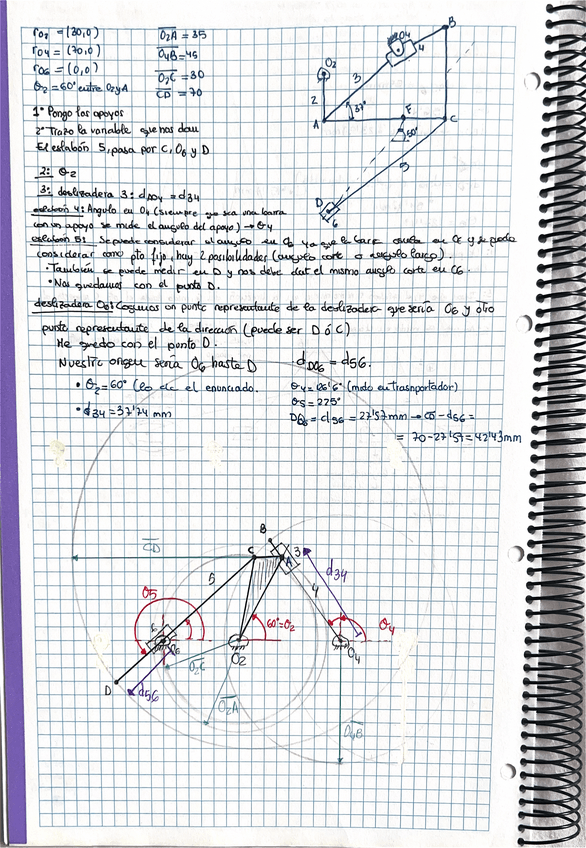 r02 = (30,0)
r04 = (70,0)
r06 = (0,0)
θ2 = 60° entre O2 y A
O2A = 35
O4B = 45
O2C = 30
CD = 70
1º Pongo los apoyos
2º Trazo la variable que nos dan
El eslabón 5, pasa por C, O6 y D
O2
2
A
3
37°
O4
4
B
E
C
50°
5
D
6
2: θ2
3: deslizadera 3: dAO4 = d34
eslabón 4: Angulo en O4 (siempre que sea una barra
con un apoyo se mide el angulo del apoyo) → θ4
eslabón 5: Se puede considerar el angulo en C6 ya que la barra en C6 y se puede
considerar como pto fijo, hay 2 posibilidades (angulo corto o angulo largo).
· También se puede medir en D y nos debe dar el mismo angulo corte en C6.
· Nos quedamos con el punto D.
deslizadera O6: Cogemos un punto representante de la deslizadera que sería O6 y otro
punto representante de la dirección (puede ser D ó C)
Me quedo con el punto D.
Nuestro origen sería O6 hasta D
dDO6 = d56.
· θ2 = 60° (lo dice el enunciado.
· d34 = 37'74 mm
θ4 = 126'6° (mdo en trasnportador)
θ5 = 225°
DO6 = d56 = 27'57mm → CD - d56 =
= 70-27'57 = 42'43mm
CD
B
C
A
3
d34
5
4
θ5
60°=θ2
θ4
6
O6
O2
O4
O2C
D
d56
O2A
O4B